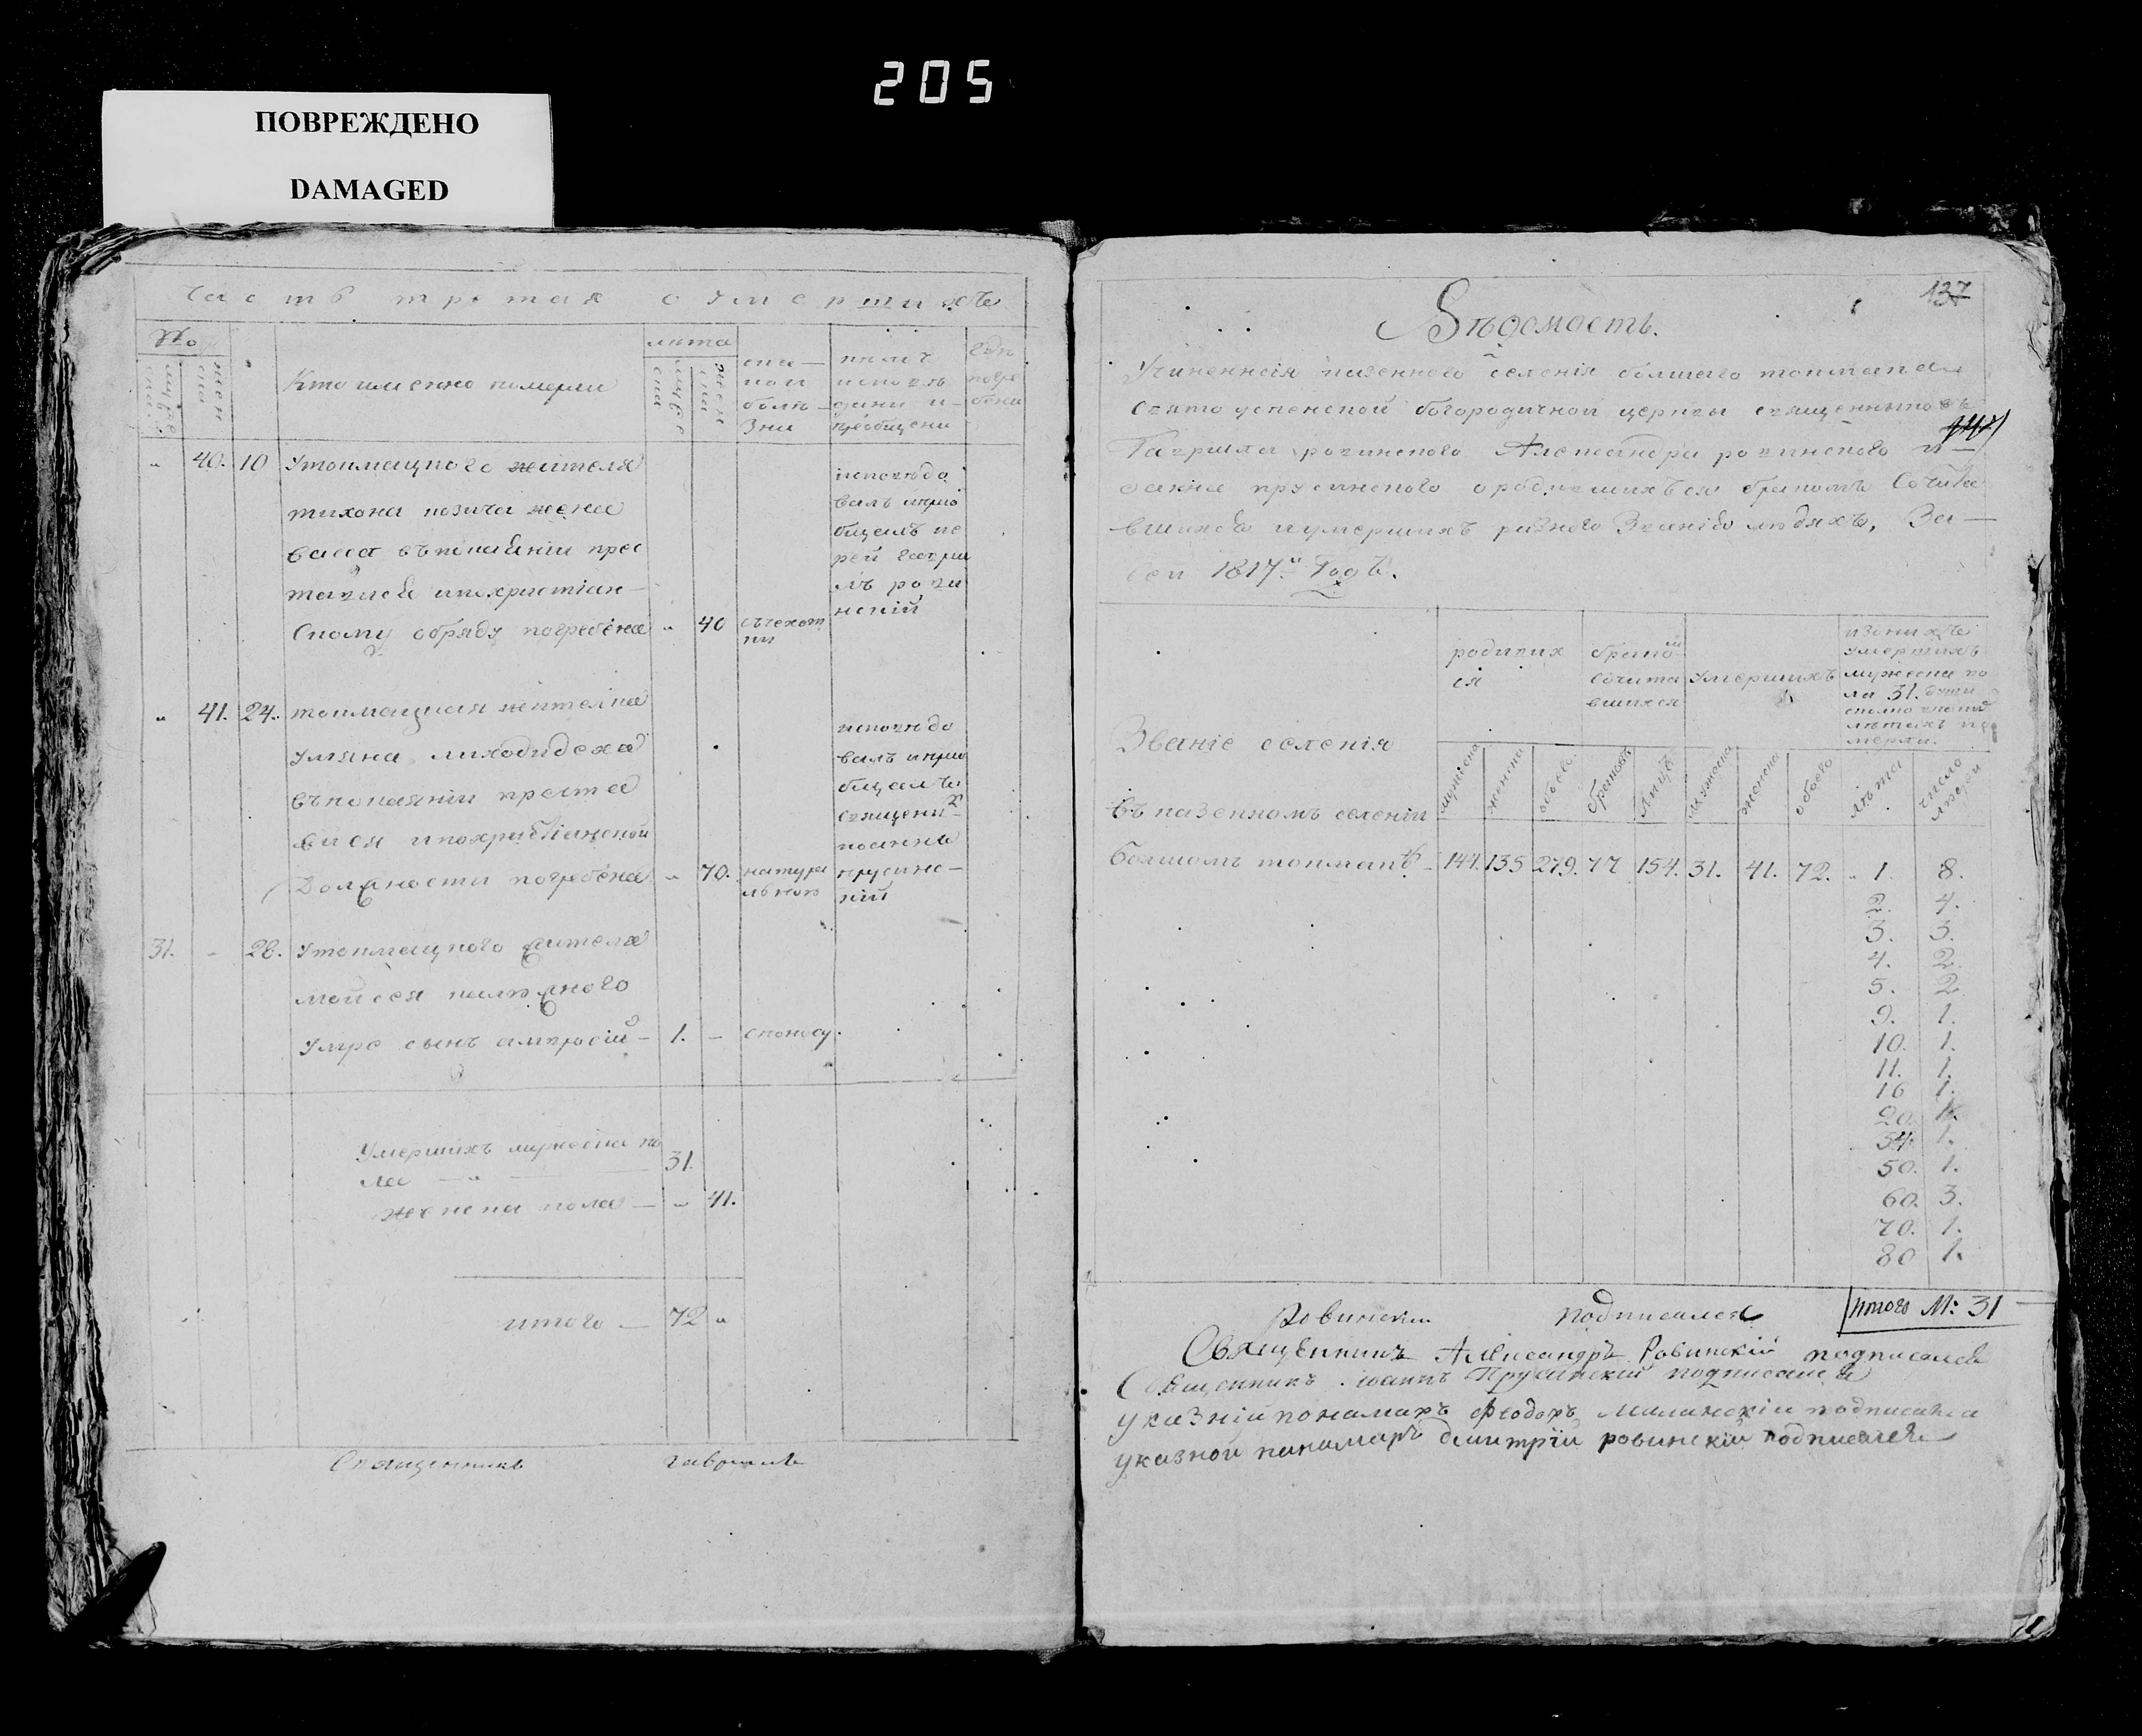 205
ПОВРЕЖДЕНО
DAMAGED
Часть третая о умершихъ
№
мужеска
женска
Кто имянно померли
лѣта
мужеска
женска
какою болѣзни
кѣмъ исповѣданы и приобщени
гдѣ погребени
" 40. 10 У токмацкого жителя
тихона козича жена
васса въ покаянiи прес
тавися и по христiан-
скому обряду погребена " 40 съчехотки
исповѣдо
валъ и прiо
бщалъ iе
рей гаври
лъ рови
нскiй
" 41. 24. токмацкая жителка
ульяна лиходидова
въ покаянiи преста
вися и по христiанской
должности погребена " 70. натуральною
исповѣдо
валъ и прио
бщалъ
священн
иоаннъ
прусинс-
кiй
31. - 28. У токмацкого жителя
мойсея
умре сынъ амвросiй - 1. - споносу.
Умершихъ мужеска по
ла — " — 31.
женска пола — " 41.
итого — 72 "
Священникъ гаврiилъ
137
Вѣдомость.
Учиненная казенного селенiя болшаго токмака
свято успенской богородичной церкви священниковъ
Гаврiила ровинского Александра ровинского и —
оакна прусинского о родившихъся бракомъ сочита
вшихся и умершихъ разного званiя людяхъ, За —
сей 1817й Годъ.
Званiе селенiя
родивихся
бракомъ сочитавшихся
умершихъ
изонихъ
умершихъ
мужеска по
ла 31. души
сколко въ каковихъ
лѣтахъ по
мерли.
мужеска
женска
обоего
браковъ
лицъ
мужеска
женска
обоего
лѣта
число людей
въ казенномъ селенiи
болшомъ токмакѣ - 144. 135 279. 77 154. 31. 41. 72. 1. 8.
2. 4.
3. 3.
4. 2.
5. 2
9. 1.
10. 1.
11. 1.
16 1.
20. 1.
34. 1.
50. 1.
60. 3.
70. 1.
80 1.
итого М: 31
Ровински подписался
Священникъ Александръ Ровинскiй подписался
Священникъ иоаннъ Прусинскiй подписался
указнiй пономаръ Феодоръ Малинскiи подписался
указной панамаръ дмитрiи ровинскiй подписался